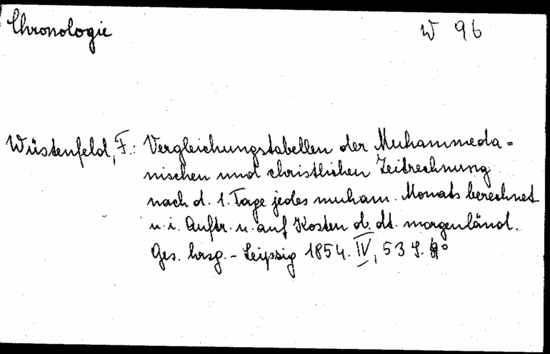 Chronologie W 96
Wüstenfeld, F.: Vergleichungstabellen der Muhammeda=
nischen und christlichen Zeitrechnung
nach d. 1. Tage jedes muham. Monats berechnet
u. i. Auftr. u. auf Kosten d. dt. morgenländ.
Ges. hrsg. - Leipzig 1854. IV, 53 S. 4°